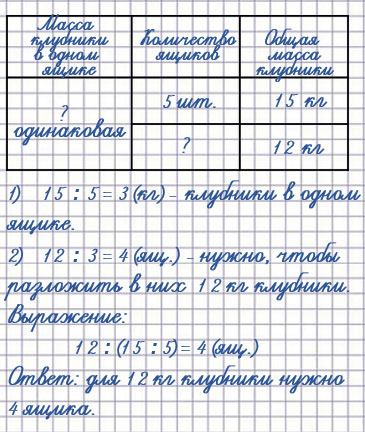 Масса клубники в одном ящике
Количество ящиков
Общая масса клубники
? одинаковая
5 шт.
15 кг
?
12 кг
1) 15 : 5 = 3 (кг) – клубники в одном
ящике.
2) 12 : 3 = 4 (ящ.) – нужно, чтобы
разложить в них 12 кг клубники.
Выражение:
12 : (15 : 5) = 4 (ящ.)
Ответ: для 12 кг клубники нужно
4 ящика.